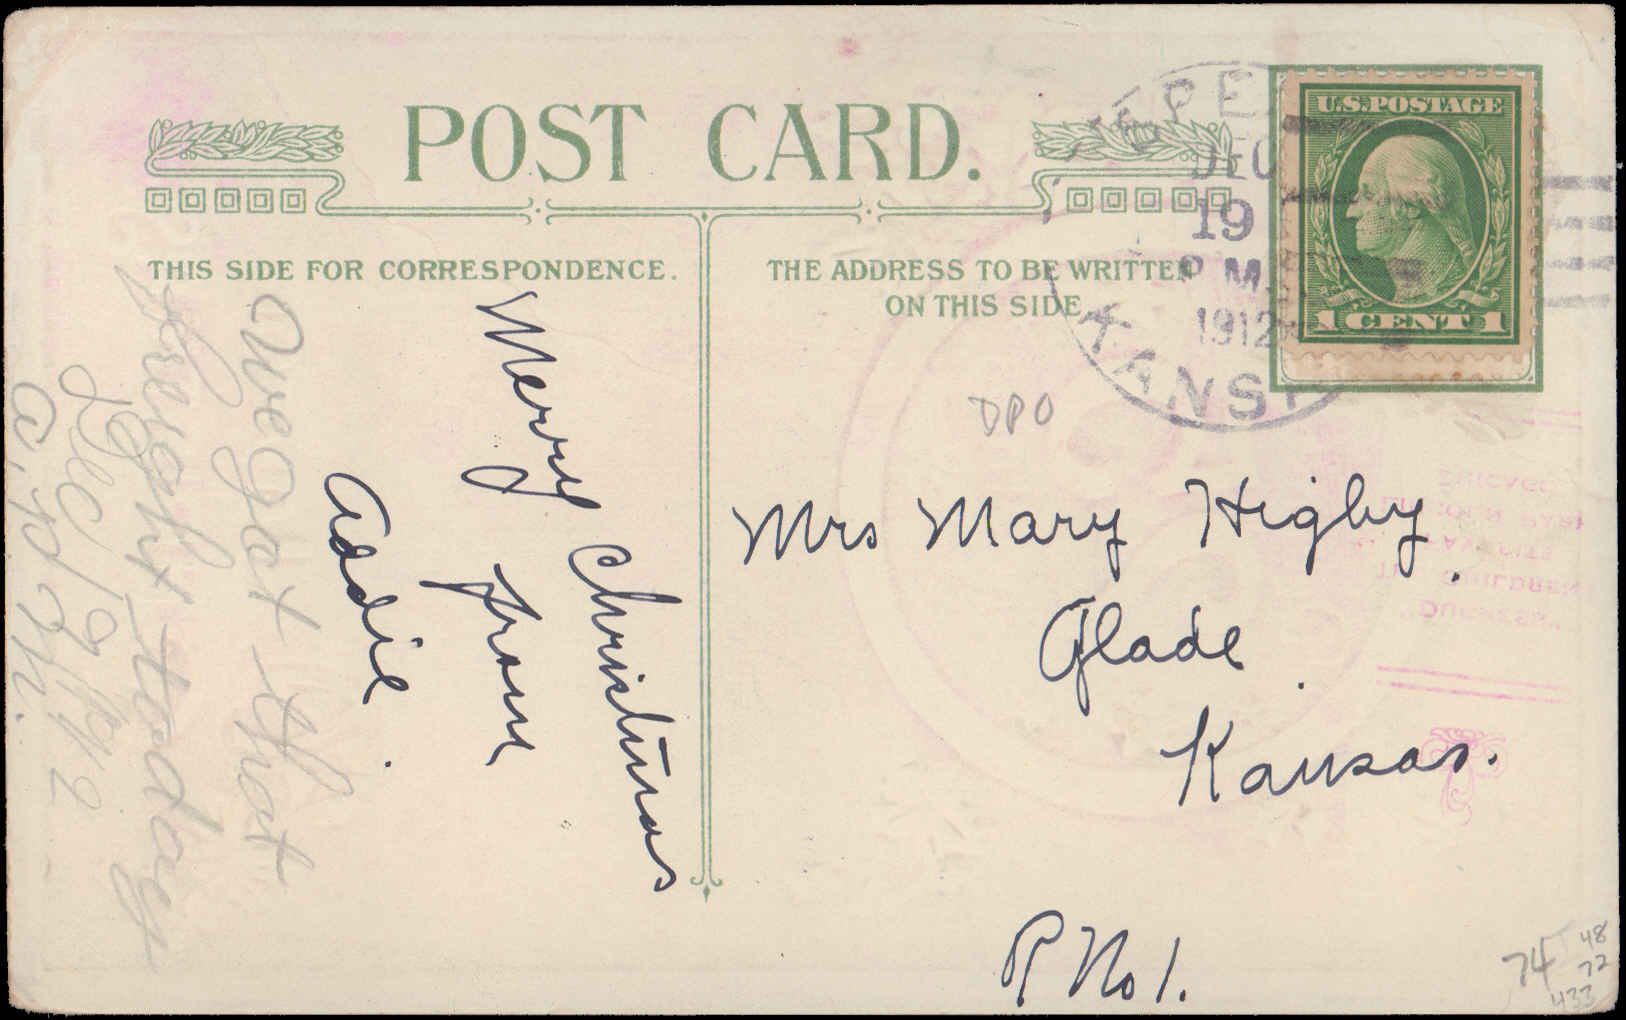 POST CARD.
THIS SIDE FOR CORRESPONDENCE.
THE ADDRESS TO BE WRITTEN
ON THIS SIDE
U.S. POSTAGE
1 CENT 1
DEC
19
P M
1912
KANS
DPO
Merry Christmas
from
Addie.
We got that
freight today
Dec 19/1912
Mrs Mary Higby.
Glade.
Kansas.
R No 1.
74
48
72
433